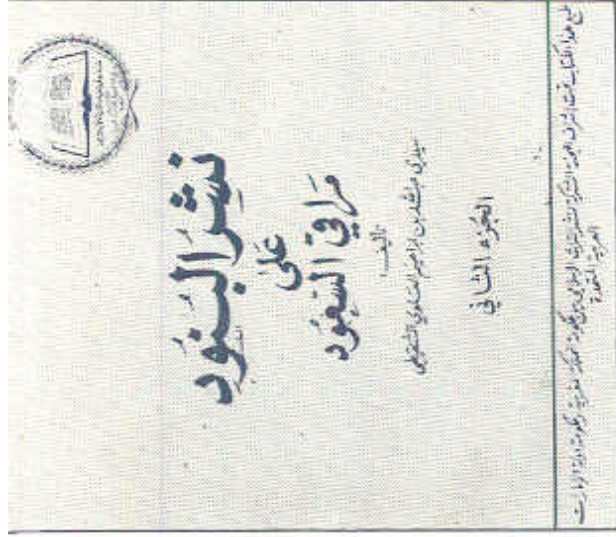 نَشْرُ البُنُود
عَلَى
مَرَاقِي السُّعُود
تأليف:
سيدي عبد الله بن إبراهيم العلوي الشنقيطي
الجُزء الثاني
طبع هذا الكتاب تحت إشراف اللجنة المشتركة لنشر التراث الإسلامي بين حكومة المملكة المغربية وحكومة دولة الإمارات
العربية المتحدة